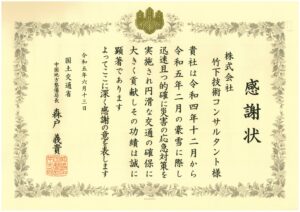 感謝状
株式会社
竹下技術コンサルタント様
貴社は令和四年十二月から
令和五年二月の豪雪に際し
迅速且つ的確に災害の応急対策を
実施され円滑な交通の確保に
大きく貢献しその功績は誠に
顕著であります
よってここに深く感謝の意を表します
令和五年六月十三日
国土交通省
中国地方整備局長
森戸義貴